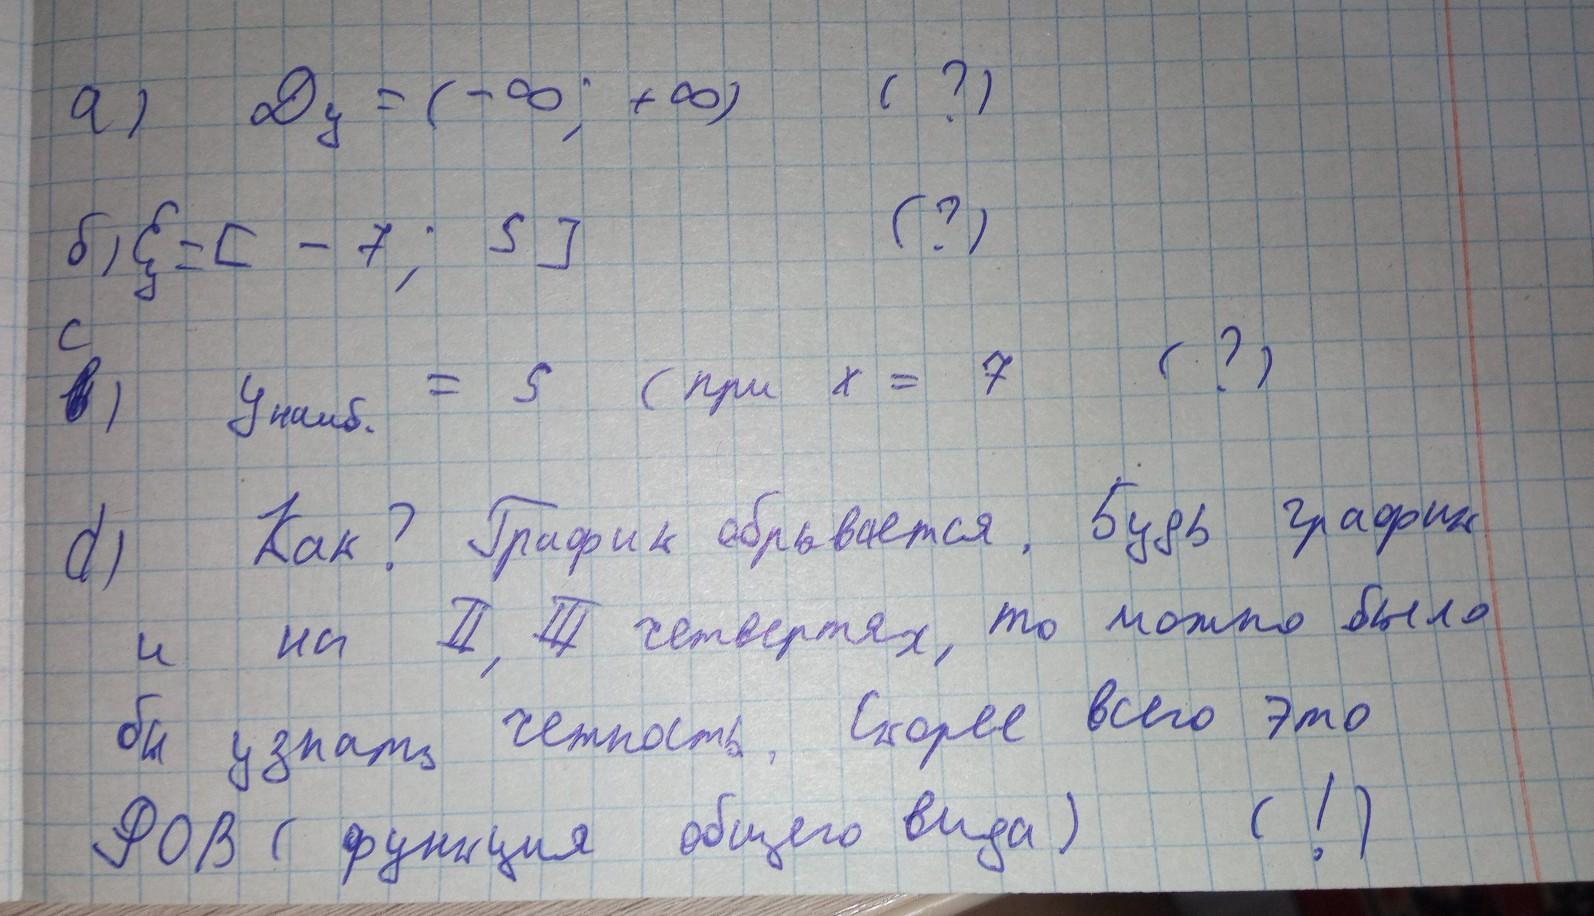 а) Dy = (-∞; +∞) (?)
б) Ey = [-7; 5] (?)
c) yнаиб. = 5 (при x = 7 (?)
d) Как? График обрывается. Будь график
и на II, III четвертях, то можно было
бы узнать четность. Скорее всего это
ФОВ (функция общего вида) (!)